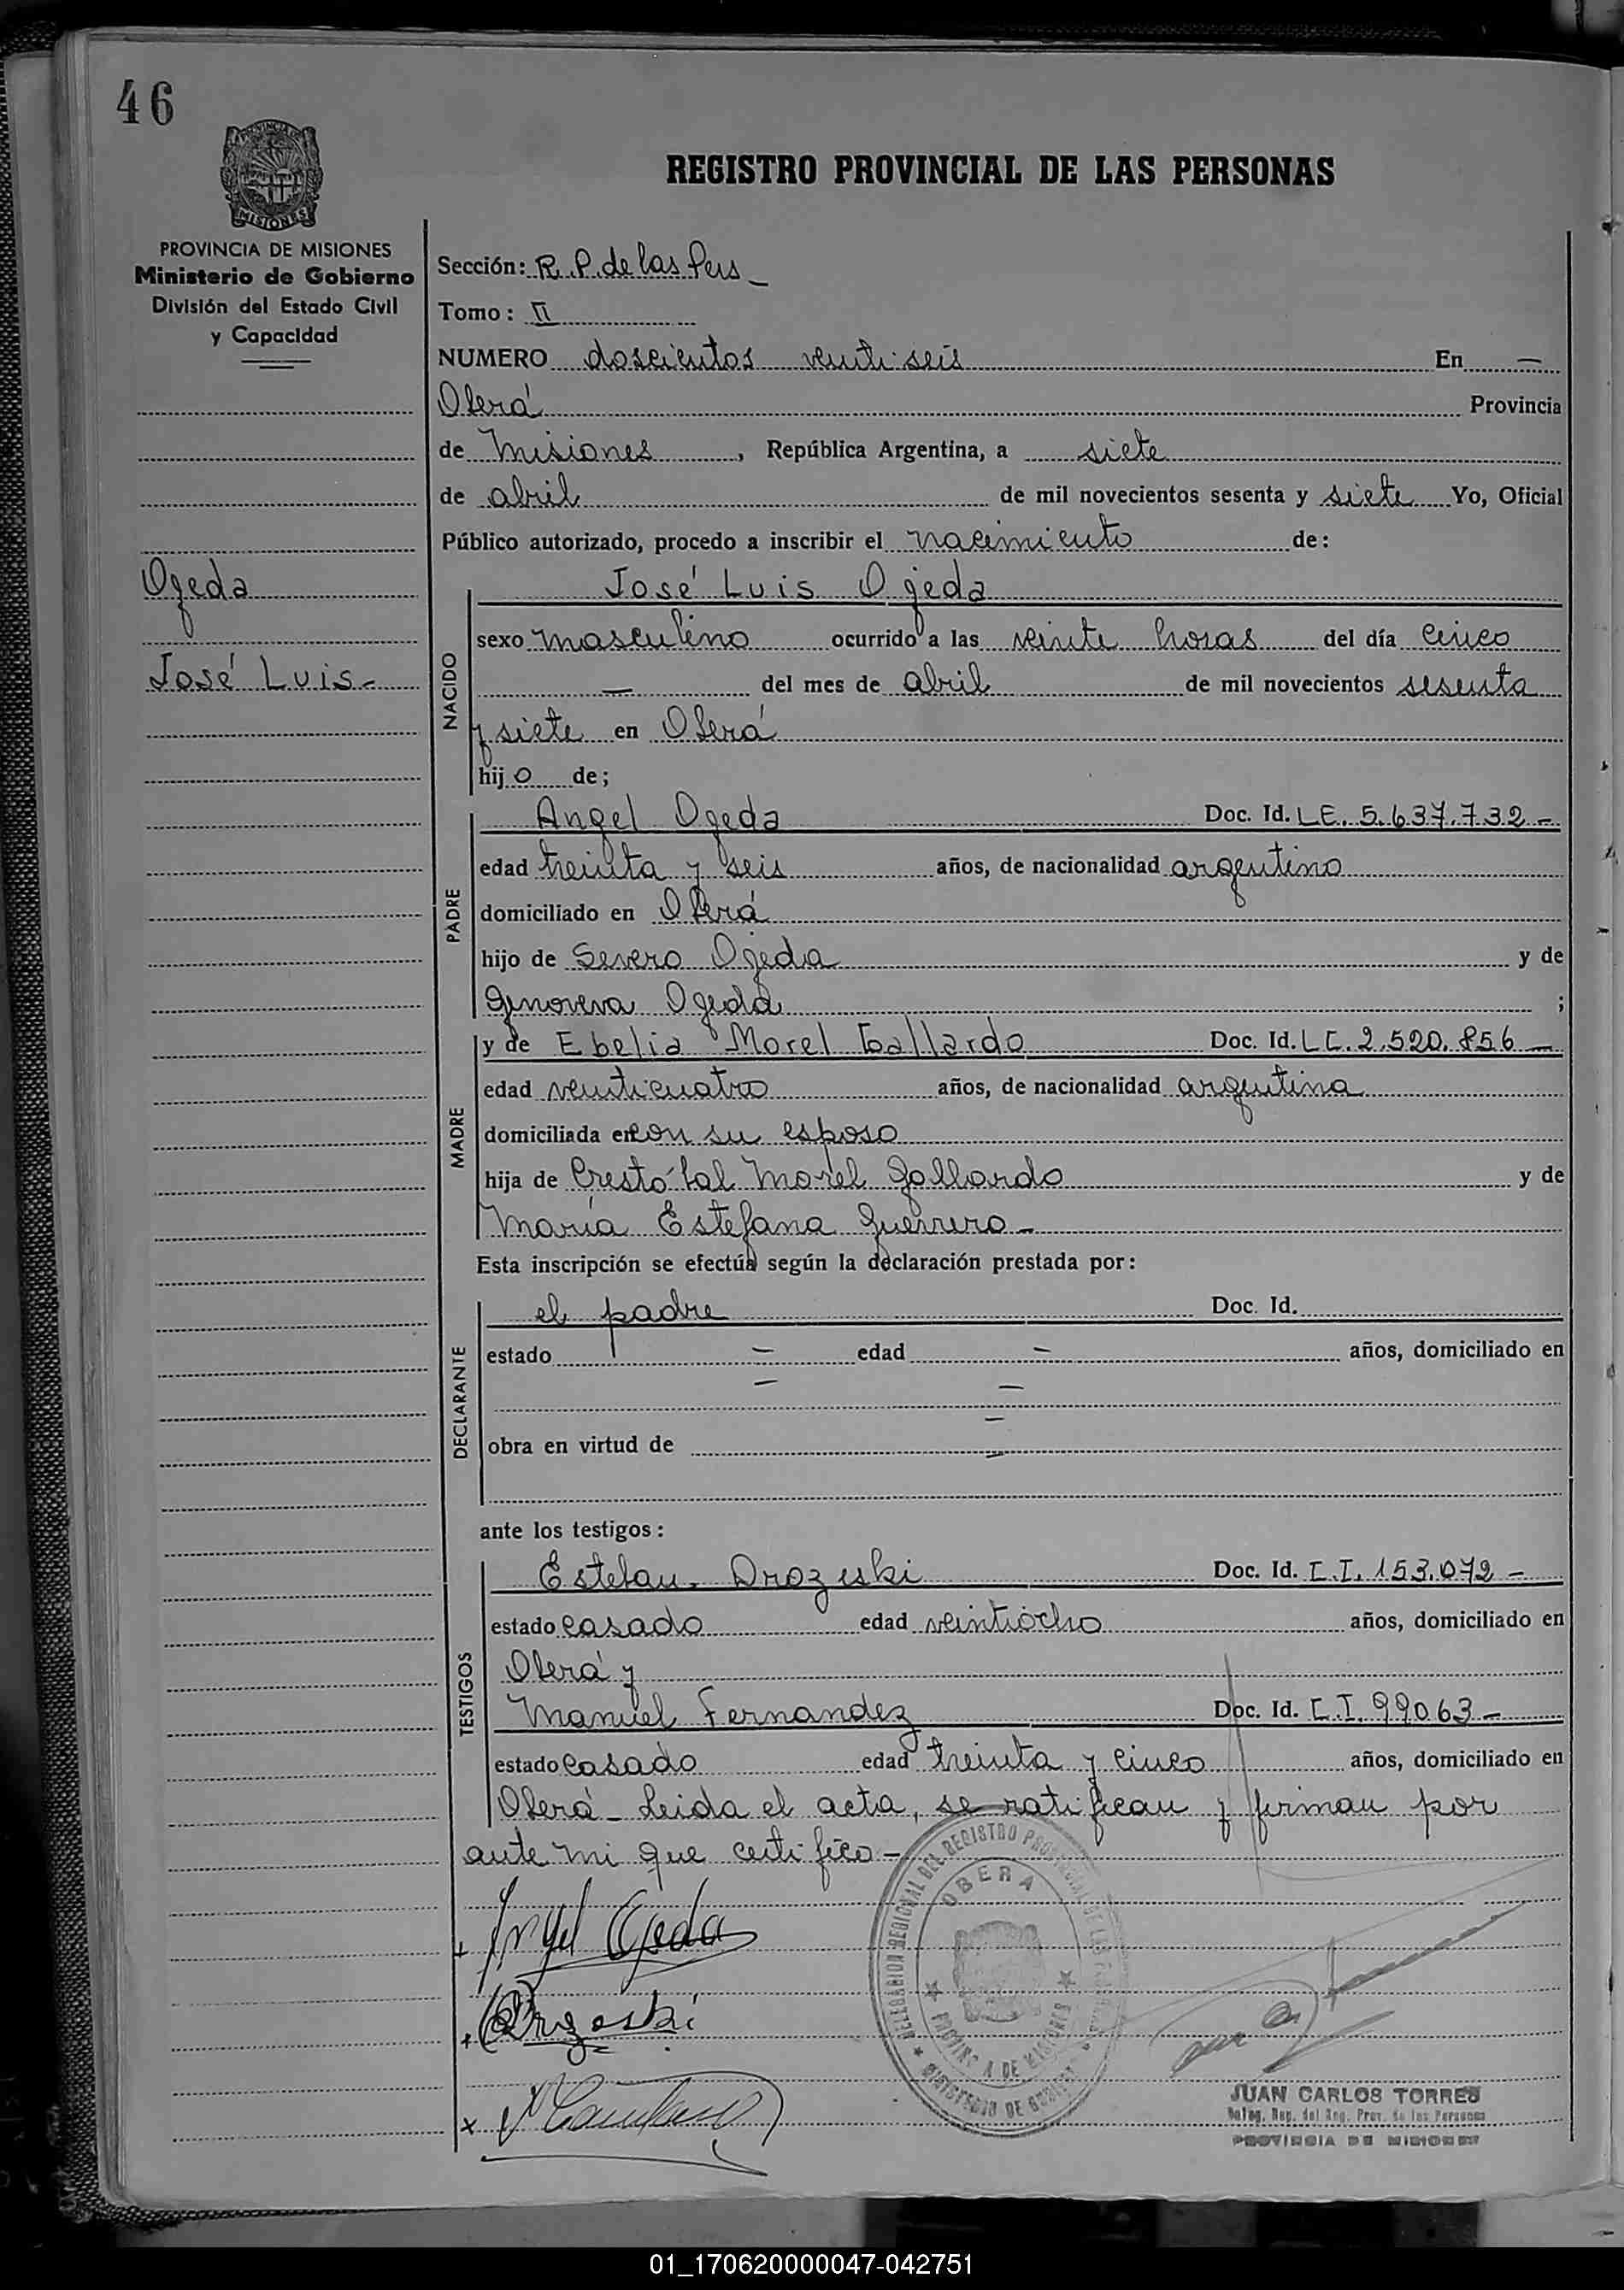 46
REGISTRO PROVINCIAL DE LAS PERSONAS
PROVINCIA DE MISIONES
MISIONES
PROVINCIA DE MISIONES
Ministerio de Gobierno
División del Estado Civil
y Capacidad
Ojeda
José Luis -
Sección: R. P. de las Pers -
Tomo: II
NUMERO doscientos veinti seis En —
Oberá Provincia
de Misiones, República Argentina, a siete
de abril de mil novecientos sesenta y siete Yo, Oficial
Público autorizado, procedo a inscribir el nacimiento de:
NACIDO
José Luis Ojeda
sexo masculino ocurrido a las veinte horas del día cinco
— del mes de abril de mil novecientos sesenta
y siete en Oberá
hijo de;
PADRE
Angel Ojeda Doc. Id. LE. 5.637.732 -
edad treinta y seis años, de nacionalidad argentino
domiciliado en Oberá
hijo de Severo Ojeda y de
Genoveva Ojeda ;
MADRE
y de Ebelia Morel Gallardo Doc. Id. LC. 2.520.856 —
edad veinticuatro años, de nacionalidad argentina
domiciliada en con su esposo
hija de Crestóbal Morel Gallardo y de
María Estefana Guerrero -
Esta inscripción se efectúa según la declaración prestada por:
DECLARANTE
el padre Doc. Id.
estado — edad — años, domiciliado en
— —
obra en virtud de —
ante los testigos:
TESTIGOS
Esteban Drozeski Doc. Id. C.I. 153.072 -
estado casado edad veintiocho años, domiciliado en
Oberá y
Manuel Fernandez Doc. Id. C.I. 99063 -
estado casado edad treinta y cinco años, domiciliado en
Oberá - Leida el acta, se ratifican y firman por
ante mi que certifico -
Angel Ojeda
Drozeski
DELEGACION REGIONAL DEL REGISTRO PROVINCIAL DE LAS PERSONAS
OBERA
PROVINCIA DE MISIONES
MINISTERIO DE GOBIERNO
JUAN CARLOS TORRES
Deleg. Reg. del Reg. Prov. de las Personas
PROVINCIA DE MISIONES
01_170620000047-042751